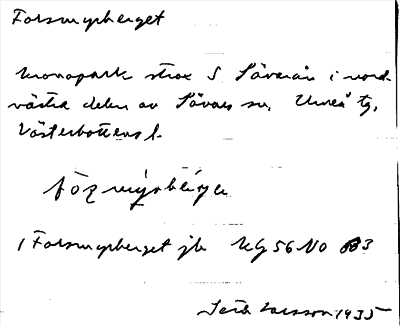 Forsmyrberget
kronopark strax S Sävarån i nord-
västra delen av Sävars sn, Umeå tg,
Västerbottens l.
1 Forsmyrberget jb KG 56 No 3
Larsson 1935